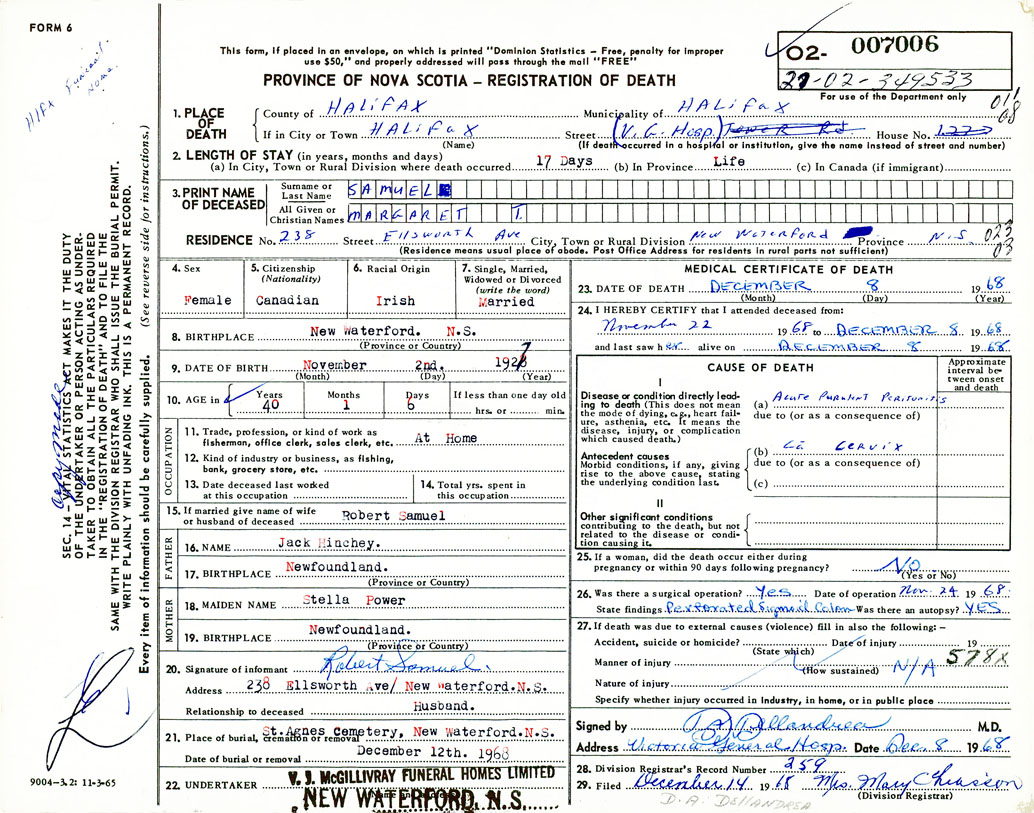 FORM 6
HIFX Funeral Home.
This form, if placed in an envelope, on which is printed "Dominion Statistics – Free, penalty for improper
use $50," and properly addressed will pass through the mail "FREE"
PROVINCE OF NOVA SCOTIA – REGISTRATION OF DEATH
02- 007006
21-02-349533
For use of the Department only
011
08
1. PLACE OF DEATH
County of HALIFAX Municipality of HALIFAX
If in City or Town HALIFAX Street (V. G. Hosp.) Tower Rd House No. 1220
(Name) (If death occurred in a hospital or institution, give the name instead of street and number)
2. LENGTH OF STAY (in years, months and days)
(a) In City, Town or Rural Division where death occurred 17 Days (b) In Province Life (c) In Canada (if immigrant)
3. PRINT NAME OF DECEASED
Surname or Last Name SAMUEL
All Given or Christian Names MARGARET T.
RESIDENCE No. 238 Street Ellsworth Ave City, Town or Rural Division New Waterford Province N.S.
023
03
(Residence means usual place of abode. Post Office Address for residents in rural parts not sufficient)
4. Sex
Female
5. Citizenship (Nationality)
Canadian
6. Racial Origin
Irish
7. Single, Married, Widowed or Divorced (write the word)
Married
8. BIRTHPLACE New Waterford. N.S.
(Province or Country)
9. DATE OF BIRTH November 2nd. 1928
(Month) (Day) (Year)
10. AGE in Years 40 Months 1 Days 6 If less than one day old hrs. or min.
OCCUPATION
11. Trade, profession, or kind of work as fisherman, office clerk, sales clerk, etc. At Home
12. Kind of industry or business, as fishing, bank, grocery store, etc.
13. Date deceased last worked at this occupation
14. Total yrs. spent in this occupation
15. If married give name of wife or husband of deceased Robert Samuel
FATHER
16. NAME Jack Hinchey.
17. BIRTHPLACE Newfoundland.
(Province or Country)
MOTHER
18. MAIDEN NAME Stella Power
19. BIRTHPLACE Newfoundland.
(Province or Country)
20. Signature of informant Robert Samuel.
Address 238 Ellsworth Ave/ New Waterford.N.S.
Relationship to deceased Husband.
21. Place of burial, cremation or removal St.Agnes Cemetery, New Waterford.N.S.
Date of burial or removal December 12th. 1968
22. UNDERTAKER V. J. McGILLIVRAY FUNERAL HOMES LIMITED
NEW WATERFORD, N.S.
MEDICAL CERTIFICATE OF DEATH
23. DATE OF DEATH DECEMBER 8 1968
(Month) (Day) (Year)
24. I HEREBY CERTIFY that I attended deceased from:
November 22 1968 to DECEMBER 8 1968
and last saw her alive on DECEMBER 8 1968
CAUSE OF DEATH
Approximate interval between onset and death
I
Disease or condition directly leading to death (This does not mean the mode of dying, e.g., heart failure, asthenia, etc. It means the disease, injury, or complication which caused death.)
(a) Acute Purulent Peritonitis
due to (or as a consequence of)
Antecedent causes
Morbid conditions, if any, giving rise to the above cause, stating the underlying condition last.
(b) Ca Cervix
due to (or as a consequence of)
(c)
II
Other significant conditions
contributing to the death, but not related to the disease or condition causing it.
25. If a woman, did the death occur either during pregnancy or within 90 days following pregnancy? NO
(Yes or No)
26. Was there a surgical operation? Yes Date of operation Nov. 24 1968
State findings Perforated Sigmoid Colon Was there an autopsy? YES
27. If death was due to external causes (violence) fill in also the following: –
Accident, suicide or homicide? Date of injury 19
(State which)
Manner of injury N/A 578X
(How sustained)
Nature of injury
Specify whether injury occurred in Industry, in home, or in public place
Signed by D. Dellandrea M.D.
Address Victoria General Hosp. Date Dec. 8 1968
28. Division Registrar's Record Number 259
29. Filed December 14 1968 Mrs. Mary Chiasson
(Division Registrar)
D. A. DELLANDREA
SEC. 14 – VITAL STATISTICS ACT MAKES IT THE DUTY
OF THE UNDERTAKER OR PERSON ACTING AS UNDER-
TAKER TO OBTAIN ALL THE PARTICULARS REQUIRED
IN THE "REGISTRATION OF DEATH" AND TO FILE THE
SAME WITH THE DIVISION REGISTRAR WHO SHALL ISSUE THE BURIAL PERMIT.
WRITE PLAINLY WITH UNFADING INK. THIS IS A PERMANENT RECORD.
Every item of information should be carefully supplied. (See reverse side for instructions.)
9004–3.2: 11-3-65